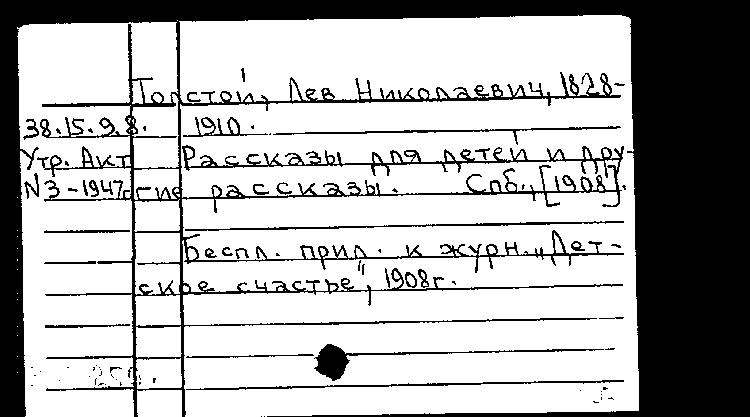 Толсто́й, Лев Николаевич, 1828-
38.15.9.8. 1910.
Утр. Акт Рассказы для детей и дру-
N3-1947г. гие рассказы. Спб., [1908].
Беспл. прил. к журн. „Дет-
ское счастье", 1908г.